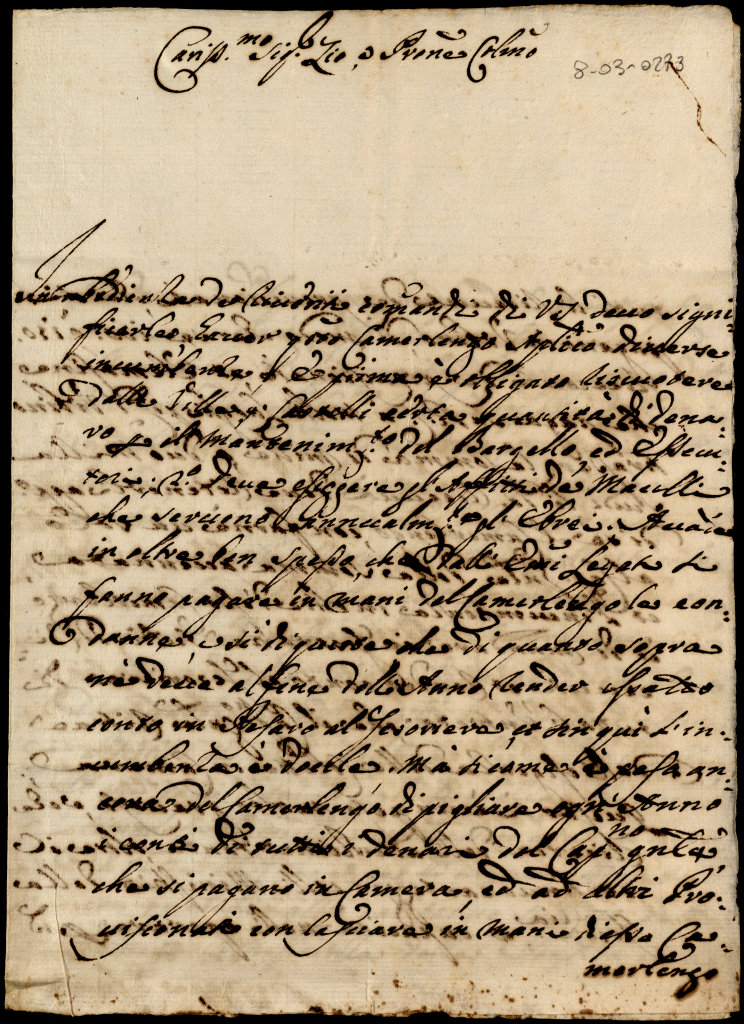 Cariss.mo Sig.r Zio, e Prone Colmo
8-03-0273
In obbedienza de riveriti comandi di VS devo signi=
ficarle haver q.sto Camerlengo Aplico diverse
incumbenze, e prima è obligato riscuotere
dalle Ville, e Castelli certa quantità di dena=
ro p il mantenim.to del Bargello, ed Essecu=
tori; 2.o deve esiggere gl'Affitti de Macelli
che servono annualm.te p gl'Ebrei. Accade
in oltre ben spesso, che dalli Emi Legati si
fanno pagare in mani del Camerlengo le con=
danne, si di queste che di quanto sopra
ne deve al fine dell'Anno render esatto
conto in Pesaro al Tesoriere, et sin qui l'in=
cumbenza è docile. Mà si come è peso an=
cora del Camerlengo di pigliare ogn'Anno
i conti di tutti i denari del Cap.no
che si pagano in Camera, ed ad altri Pro=
visionati con lasciare in mani di esso Ca=
merlengo